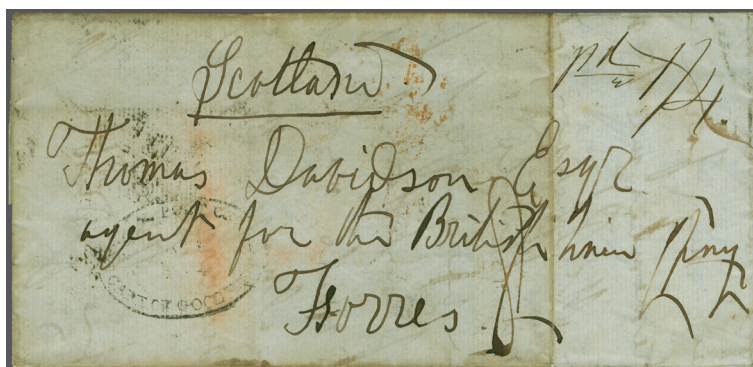 Scotland
pd 1/4
Thomas Davidson Esqr
agent for the British Linen Compy
Forres
CAPE OF GOOD